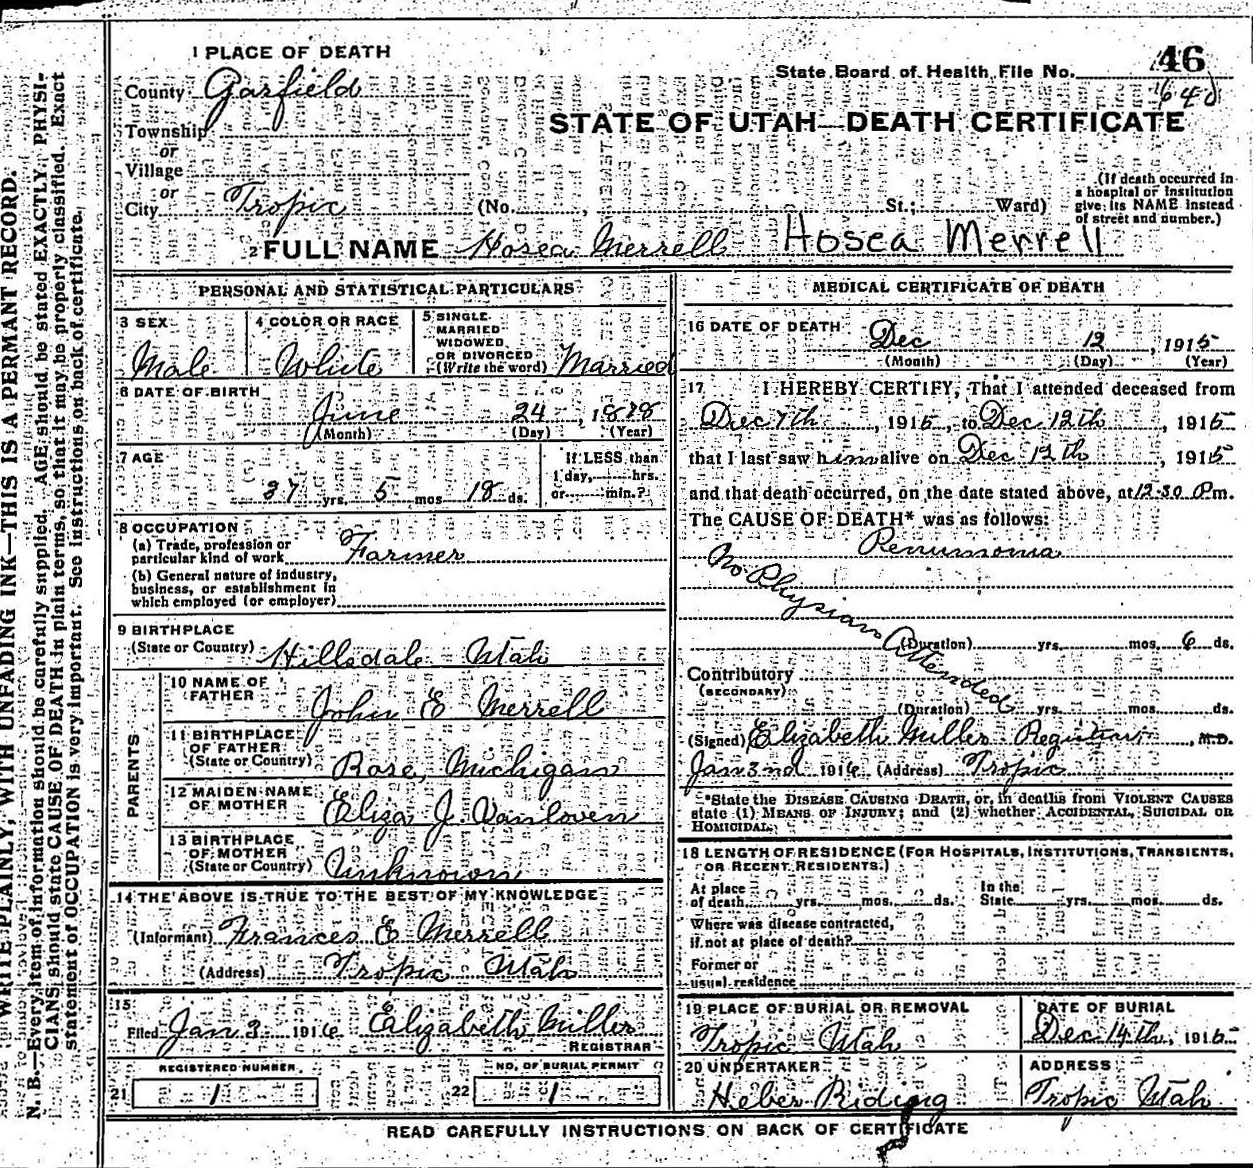 1 PLACE OF DEATH
County Garfield
Township
or
Village
or
City Tropic (No. , St.; Ward)
State Board of Health File No. 46
640
STATE OF UTAH—DEATH CERTIFICATE
(If death occurred in
a hospital or institution
give its NAME instead
of street and number.)
2 FULL NAME Hosea Merrell Hosea Merrell
PERSONAL AND STATISTICAL PARTICULARS
3 SEX Male
4 COLOR OR RACE White
5 SINGLE
MARRIED
WIDOWED
OR DIVORCED
(Write the word) Married
6 DATE OF BIRTH
June 24, 1878
(Month) (Day) (Year)
7 AGE
37 yrs. 5 mos 18 ds.
If LESS than
1 day, hrs.
or min.?
8 OCCUPATION
(a) Trade, profession or
particular kind of work Farmer
(b) General nature of industry,
business, or establishment in
which employed (or employer)
9 BIRTHPLACE
(State or Country) Hillsdale Utah
PARENTS
10 NAME OF
FATHER John E Merrell
11 BIRTHPLACE
OF FATHER
(State or Country) Rose, Michigan
12 MAIDEN NAME
OF MOTHER Eliza J. Vanloven
13 BIRTHPLACE
OF MOTHER
(State or Country) Unknown
14 THE ABOVE IS TRUE TO THE BEST OF MY KNOWLEDGE
(Informant) Frances E Merrell
(Address) Tropic Utah
15
Filed Jan 3 1916 Elizabeth Miller
REGISTRAR
REGISTERED NUMBER
21 1
NO. OF BURIAL PERMIT
22 1
MEDICAL CERTIFICATE OF DEATH
16 DATE OF DEATH Dec 12, 1915
(Month) (Day) (Year)
17 I HEREBY CERTIFY, That I attended deceased from
Dec 7th, 1915, to Dec 12th, 1915
that I last saw him alive on Dec 12th, 1915
and that death occurred, on the date stated above, at 12-30 Pm.
The CAUSE OF DEATH* was as follows:
Penumonia
No Physian Attended
(Duration) yrs. mos. 6 ds.
Contributory
(SECONDARY)
(Duration) yrs. mos. ds.
(Signed) Elizabeth Miller Registrar, M.D.
Jan 3nd 1916 (Address) Tropic
*State the DISEASE CAUSING DEATH, or, in deaths from VIOLENT CAUSES
state (1) MEANS OF INJURY; and (2) whether ACCIDENTAL, SUICIDAL OR
HOMICIDAL.
18 LENGTH OF RESIDENCE (FOR HOSPITALS, INSTITUTIONS, TRANSIENTS,
OR RECENT RESIDENTS.)
At place
of death yrs. mos. ds.
In the
State yrs. mos. ds.
Where was disease contracted,
if not at place of death?
Former or
usual residence
19 PLACE OF BURIAL OR REMOVAL
Tropic Utah
DATE OF BURIAL
Dec. 14th, 1915
20 UNDERTAKER
Heber Riding
ADDRESS
Tropic Utah
READ CAREFULLY INSTRUCTIONS ON BACK OF CERTIFICATE
WRITE PLAINLY, WITH UNFADING INK—THIS IS A PERMANT RECORD.
N. B.—Every item of information should be carefully supplied. AGE should be stated EXACTLY. PHYSI-
CIANS should state CAUSE OF DEATH in plain terms, so that it may be properly classified. Exact
statement of OCCUPATION is very important. See instructions on back of certificate.